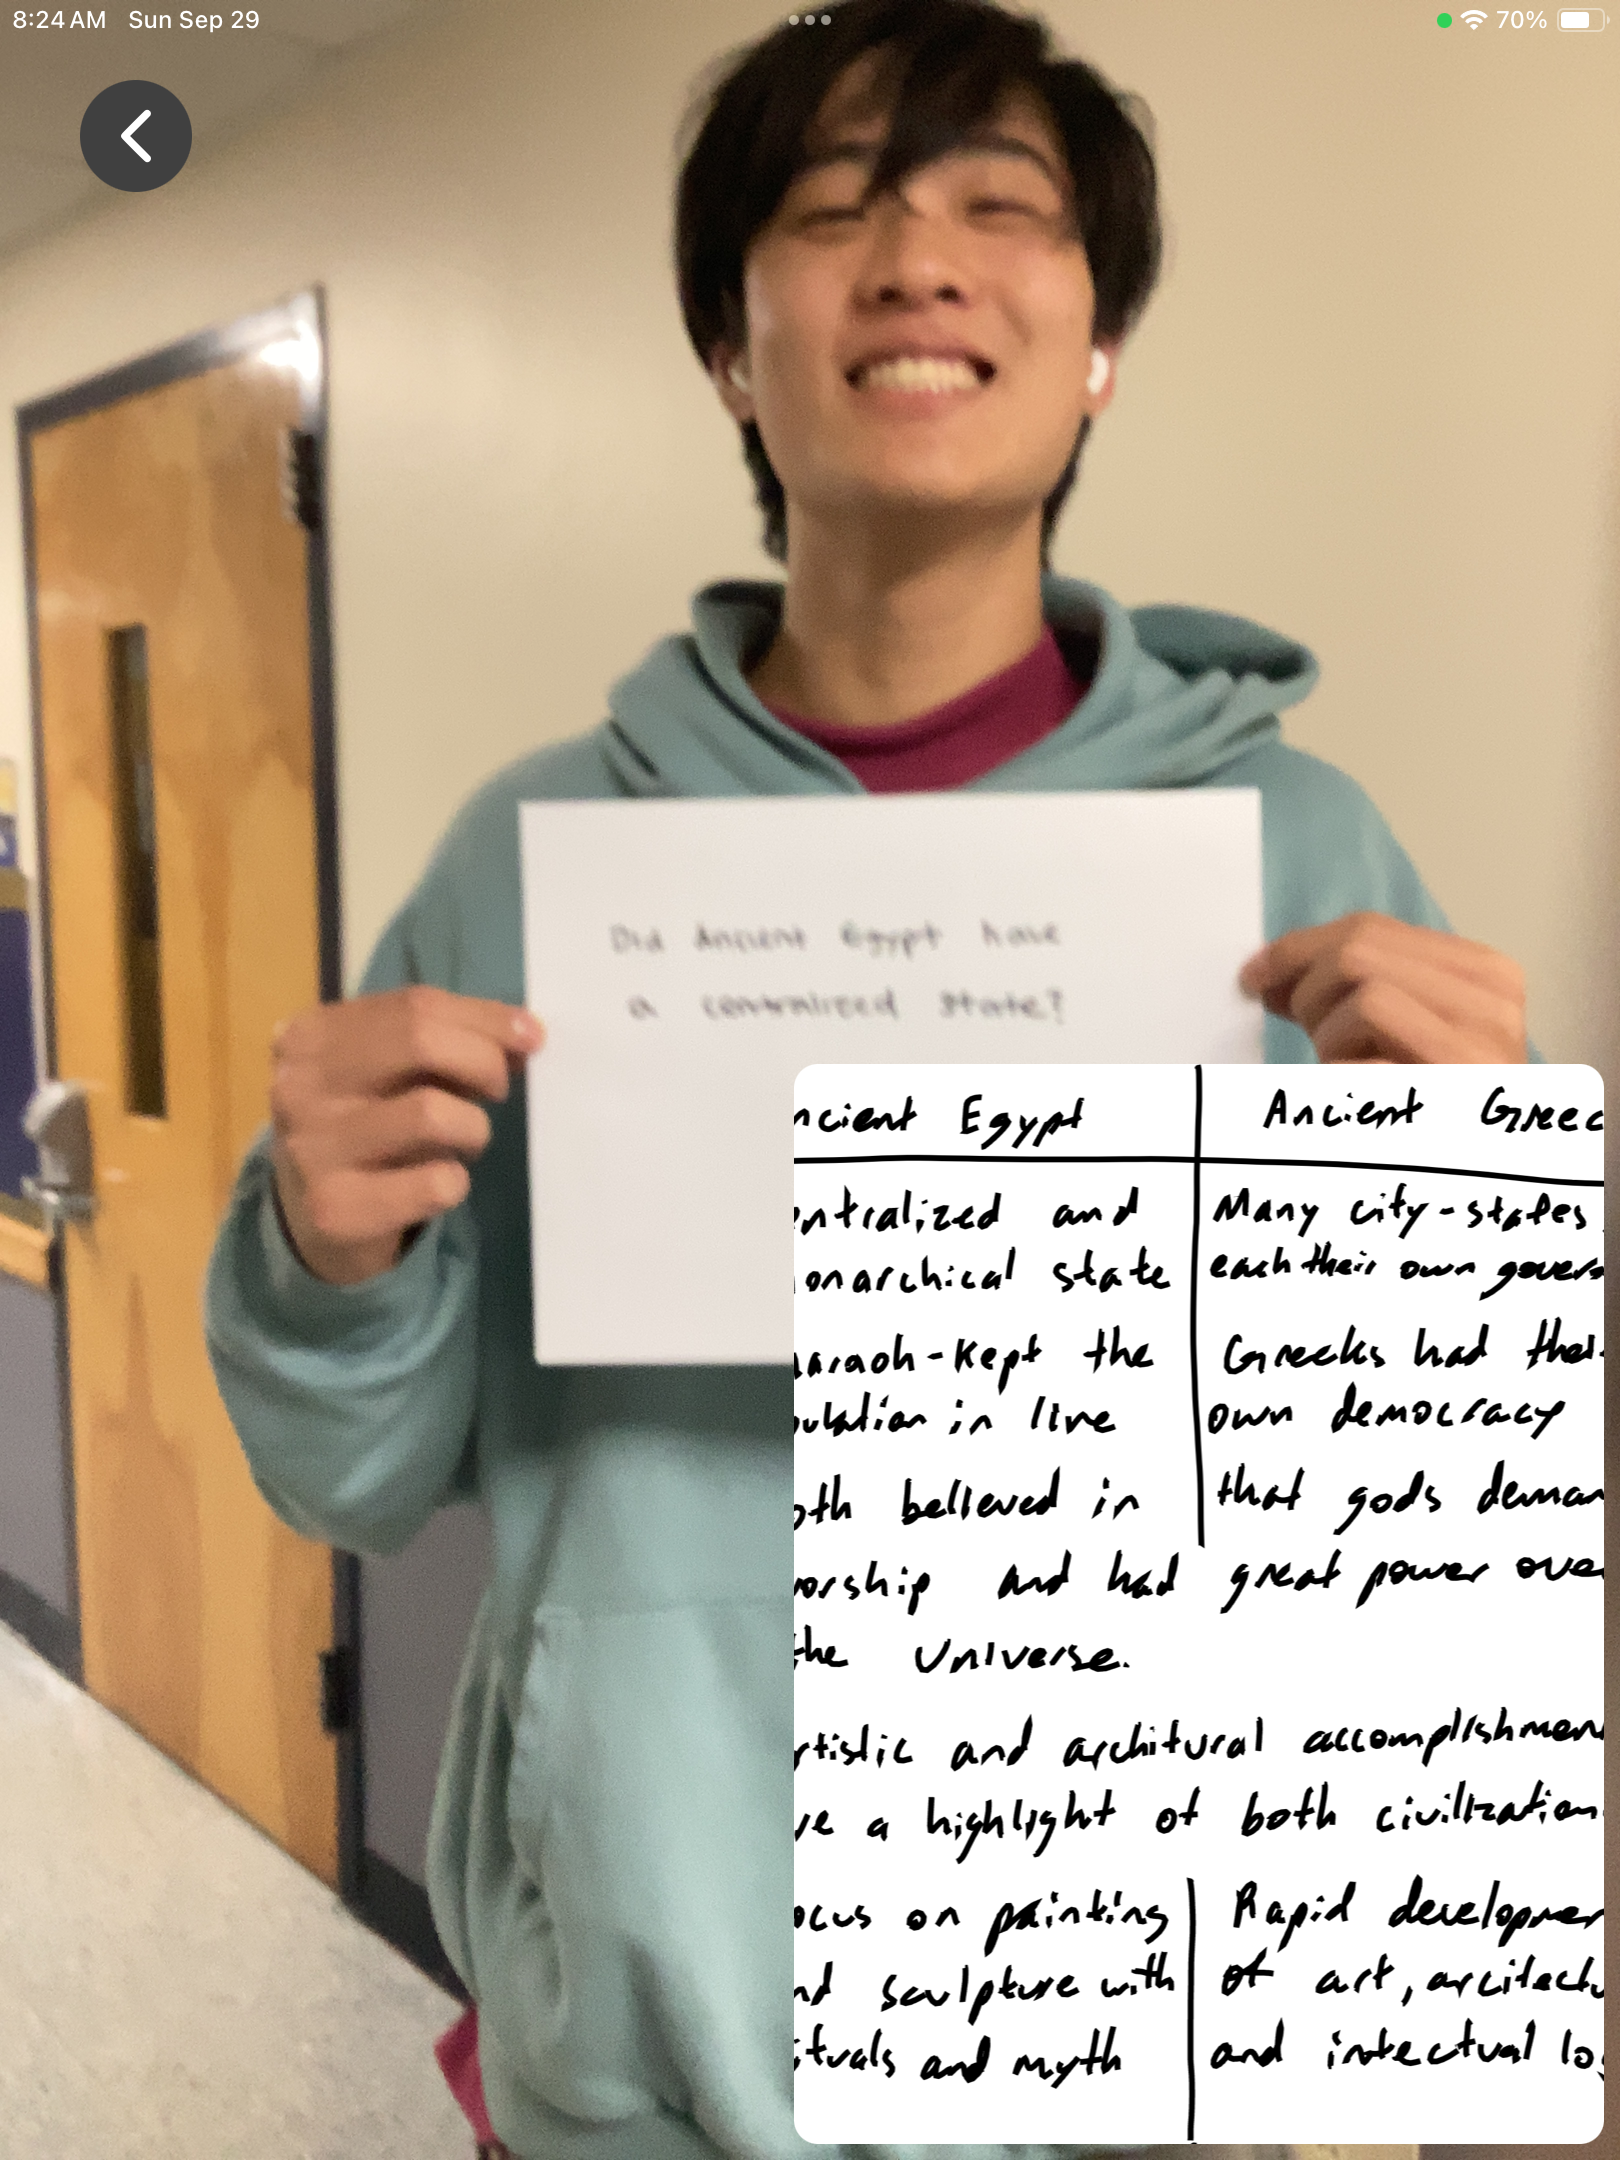 8:24 AM Sun Sep 29
70%
Did Ancient Egypt have
a centralized state?
ncient Egypt
Ancient Greec
entralized and
onarchical state
Many city-states,
each their own govern
haraoh-kept the
pulation in line
Greeks had their
own democracy
oth believed in that gods deman
worship and had great power over
the Universe.
rtistic and architural accomplishmen
ve a highlight of both civilization
ocus on painting
nd sculpture with
ituals and myth
Rapid developmen
of art, arcitectu
and intectual lo